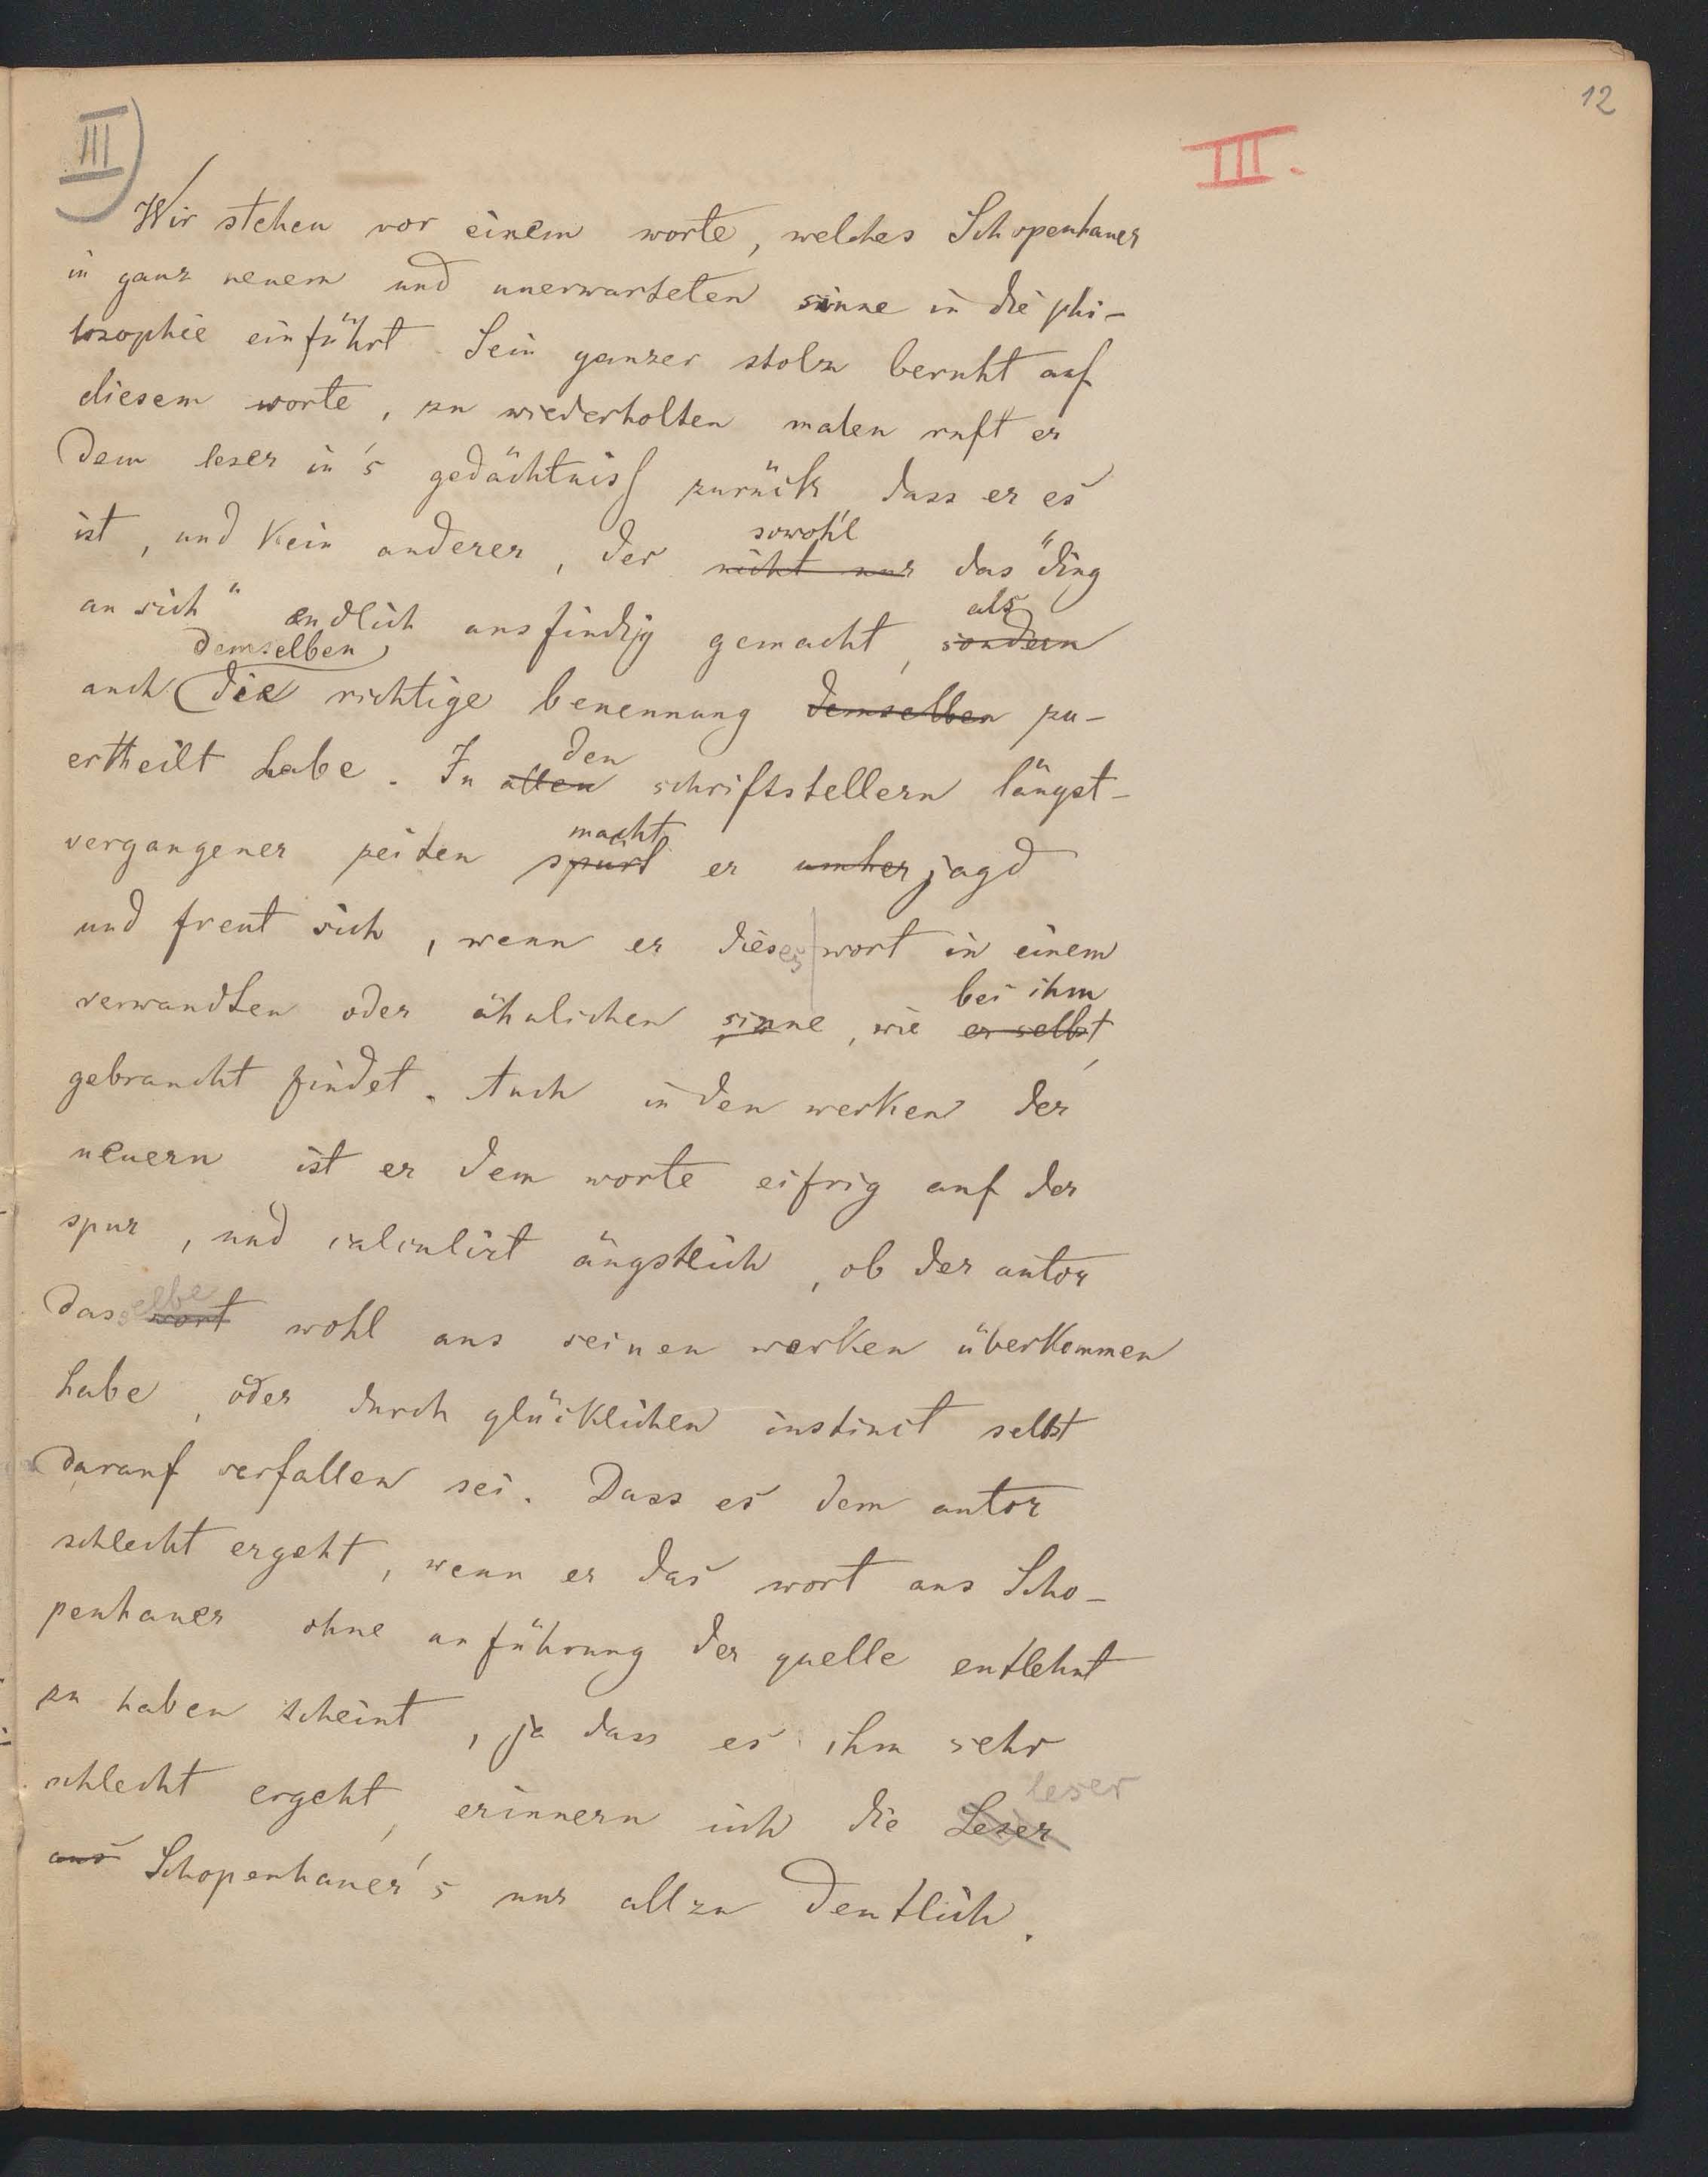 12
III)
III.
Wir stehen vor einem worte, welches Schopenhauer
in ganz neuem und unerwarteten sinne in die phi-
losophie einführt. Sein ganzer stolz beruht auf
diesem worte, zu wiederholten malen ruft er
dem leser in's gedächtniss zurück dass er es
sowohl
ist, und kein anderer, der nicht nur das "ding
als
an sich" endlich ausfindig gemacht, sondern
demselben
auch die richtige benennung demselben zu-
den
ertheilt habe. In allen schriftstellern längst-
macht
vergangener zeiten spürt er umher jagd
und freut sich, wenn er dieses wort in einem
bei ihm
verwandten oder ähnlichen sinne, wie er selbst,
gebraucht findet. Auch in den werken der
neuern ist er dem worte eifrig auf der
spur, und calculirt ängstlich, ob der autor
selbe
das wort wohl aus seinen werken überkommen
habe, oder durch glücklichen instinct selbst
darauf verfallen sei. Dass es dem autor
schlecht ergeht, wenn er das wort aus Scho-
penhauer ohne anführung der quelle entlehnt
zu haben scheint, ja dass es ihm sehr
leser
schlecht ergeht, erinnern sich die Leser
aus Schopenhauer's nur allzu deutlich.